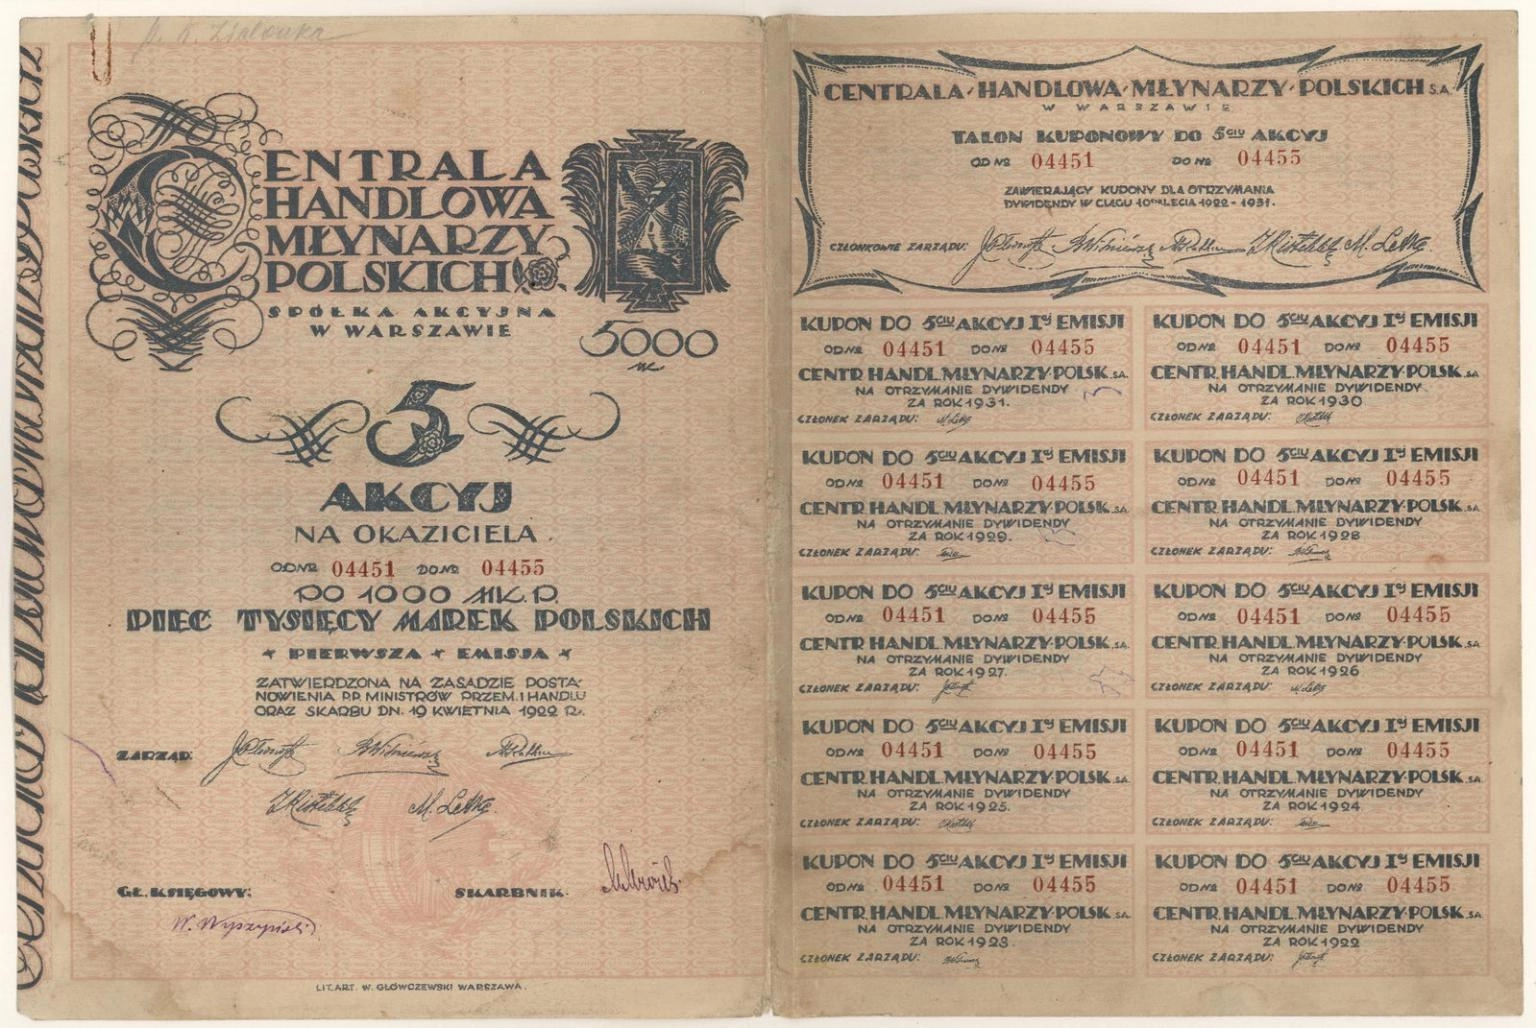 CENTRALA
HANDLOWA
MŁYNARZY
POLSKICH
SPÓŁKA AKCYJNA
W WARSZAWIE
5000
MK.
5
AKCYJ
NA OKAZICIELA.
OD № 04451 DO № 04455
PO 1000 MK. P.
PIĘĆ TYSIĘCY MAREK POLSKICH
PIERWSZA EMISJA
ZATWIERDZONA NA ZASADZIE POSTA-
NOWIENIA P.P. MINISTRÓW PRZEM. I HANDLU
ORAZ SKARBU DN. 19 KWIETNIA 1922 R.
ZARZĄD:
GŁ. KSIĘGOWY: SKARBNIK:
W. Wyszyński
LIT. ART. W. GŁÓWCZEWSKI WARSZAWA.
CENTRALA HANDLOWA MŁYNARZY POLSKICH S.A.
W WARSZAWIE
TALON KUPONOWY DO 5CIU AKCYJ
OD № 04451 DO № 04455
ZAWIERAJĄCY KUPONY DLA OTRZYMANIA
DYWIDENDY W CIĄGU 10CIOLECIA 1922-1931.
CZŁONKOWIE ZARZĄDU:
KUPON DO 5CIU AKCYJ IEJ EMISJI
OD № 04451 DO № 04455
CENTR. HANDL. MŁYNARZY POLSK. S.A.
NA OTRZYMANIE DYWIDENDY
ZA ROK 1931.
CZŁONEK ZARZĄDU:
KUPON DO 5CIU AKCYJ IEJ EMISJI
OD № 04451 DO № 04455
CENTR. HANDL. MŁYNARZY POLSK. S.A.
NA OTRZYMANIE DYWIDENDY
ZA ROK 1930
CZŁONEK ZARZĄDU:
KUPON DO 5CIU AKCYJ IEJ EMISJI
OD № 04451 DO № 04455
CENTR. HANDL. MŁYNARZY POLSK. S.A.
NA OTRZYMANIE DYWIDENDY
ZA ROK 1929.
CZŁONEK ZARZĄDU:
KUPON DO 5CIU AKCYJ IEJ EMISJI
OD № 04451 DO № 04455
CENTR. HANDL. MŁYNARZY POLSK. S.A.
NA OTRZYMANIE DYWIDENDY
ZA ROK 1928
CZŁONEK ZARZĄDU:
KUPON DO 5CIU AKCYJ IEJ EMISJI
OD № 04451 DO № 04455
CENTR. HANDL. MŁYNARZY POLSK. S.A.
NA OTRZYMANIE DYWIDENDY
ZA ROK 1927.
CZŁONEK ZARZĄDU:
KUPON DO 5CIU AKCYJ IEJ EMISJI
OD № 04451 DO № 04455
CENTR. HANDL. MŁYNARZY POLSK. S.A.
NA OTRZYMANIE DYWIDENDY
ZA ROK 1926
CZŁONEK ZARZĄDU:
KUPON DO 5CIU AKCYJ IEJ EMISJI
OD № 04451 DO № 04455
CENTR. HANDL. MŁYNARZY POLSK. S.A.
NA OTRZYMANIE DYWIDENDY
ZA ROK 1925.
CZŁONEK ZARZĄDU:
KUPON DO 5CIU AKCYJ IEJ EMISJI
OD № 04451 DO № 04455
CENTR. HANDL. MŁYNARZY POLSK. S.A.
NA OTRZYMANIE DYWIDENDY
ZA ROK 1924.
CZŁONEK ZARZĄDU:
KUPON DO 5CIU AKCYJ IEJ EMISJI
OD № 04451 DO № 04455
CENTR. HANDL. MŁYNARZY POLSK. S.A.
NA OTRZYMANIE DYWIDENDY
ZA ROK 1923.
CZŁONEK ZARZĄDU:
KUPON DO 5CIU AKCYJ IEJ EMISJI
OD № 04451 DO № 04455
CENTR. HANDL. MŁYNARZY POLSK. S.A.
NA OTRZYMANIE DYWIDENDY
ZA ROK 1922
CZŁONEK ZARZĄDU: